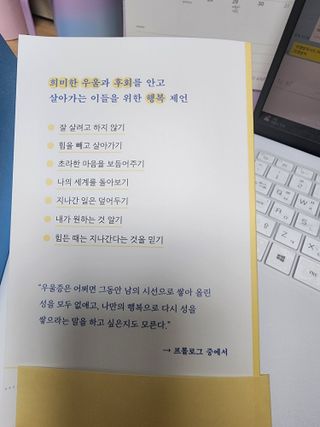 희미한 우울과 후회를 안고
살아가는 이들을 위한 행복 제언
잘 살려고 하지 않기
힘을 빼고 살아가기
초라한 마음을 보듬어주기
나의 세계를 돌아보기
지나간 일은 덮어두기
내가 원하는 것 알기
힘든 때는 지나간다는 것을 믿기
"우울증은 어쩌면 그동안 남의 시선으로 쌓아 올린
성을 모두 없애고, 나만의 행복으로 다시 성을
쌓으라는 말을 하고 싶은지도 모른다."
→ 프롤로그 중에서